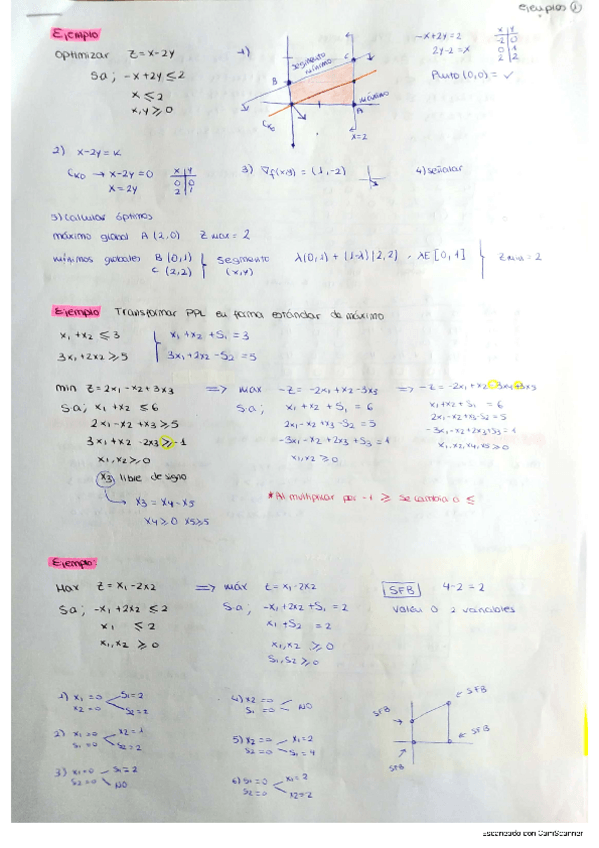 ejemplos 1
Ejemplo
Optimizar Z = x-2y
Sa; -x+2y ≤ 2
x ≤ 2
x,y ≥ 0
1)
segmento mínimo
B
C
máximo
A
x=2
CK0
-x+2y=2
2y-2=x
x y
-2 0
0 1
2 2
Punto (0,0) = ✓
2) x-2y=K
CK0 → x-2y=0
x=2y
x y
0 0
2 1
3) ∇f(x,y) = (1,-2)
4) señalar
5) calcular óptimos
máximo global A (2,0) Zmax = 2
mínimos globales B (0,1)
C (2,2)
segmento (x,y)
λ(0,1) + (1-λ)(2,2) , λ∈[0,1]
Zmin = 2
Ejemplo Transformar PPL en forma estándar de máximo
x1+x2 ≤ 3 x1+x2+S1 = 3
3x1+2x2 ≥ 5 3x1+2x2-S2 = 5
min Z=2x1-x2+3x3 => max -Z= -2x1+x2-3x3 => -Z=-2x1+x2-3x4+3x5
Sa; x1+x2 ≤ 6 Sa; x1+x2+S1 = 6 x1+x2+S1 = 6
2x1-x2+x3 ≥ 5 2x1-x2+x3-S2 = 5 2x1-x2+x3-S2=5
3x1+x2-2x3 ≥ -1 -3x1-x2+2x3+S3 = 1 -3x1-x2+2x3+S3=1
x1,x2 ≥ 0 x1,x2 ≥ 0 x1,x2,x4,x5 ≥ 0
x3 libre de signo
x3 = x4-x5
x4≥0 x5≥5
*Al multiplicar por -1 ≥ se cambia a ≤
Ejemplo:
Max Z=x1-2x2 => máx Z=x1-2x2
Sa; -x1+2x2 ≤ 2 Sa; -x1+2x2+S1 = 2
x1 ≤ 2 x1+S2 = 2
x1,x2 ≥ 0 x1,x2 ≥ 0
S1,S2 ≥ 0
SFB 4-2=2
valen 0 2 variables
1) x1=0 S1=2
x2=0 S2=2
2) x1=0 x2=1
S1=0 S2=2
3) x1=0 S1=2
S2=0 NO
4) x2=0
S1=0 NO
5) x2=0 x1=2
S2=0 S1=4
6) S1=0 x1=2
S2=0 x2=2
SFB
SFB
SFB
SFB
Escaneado con CamScanner